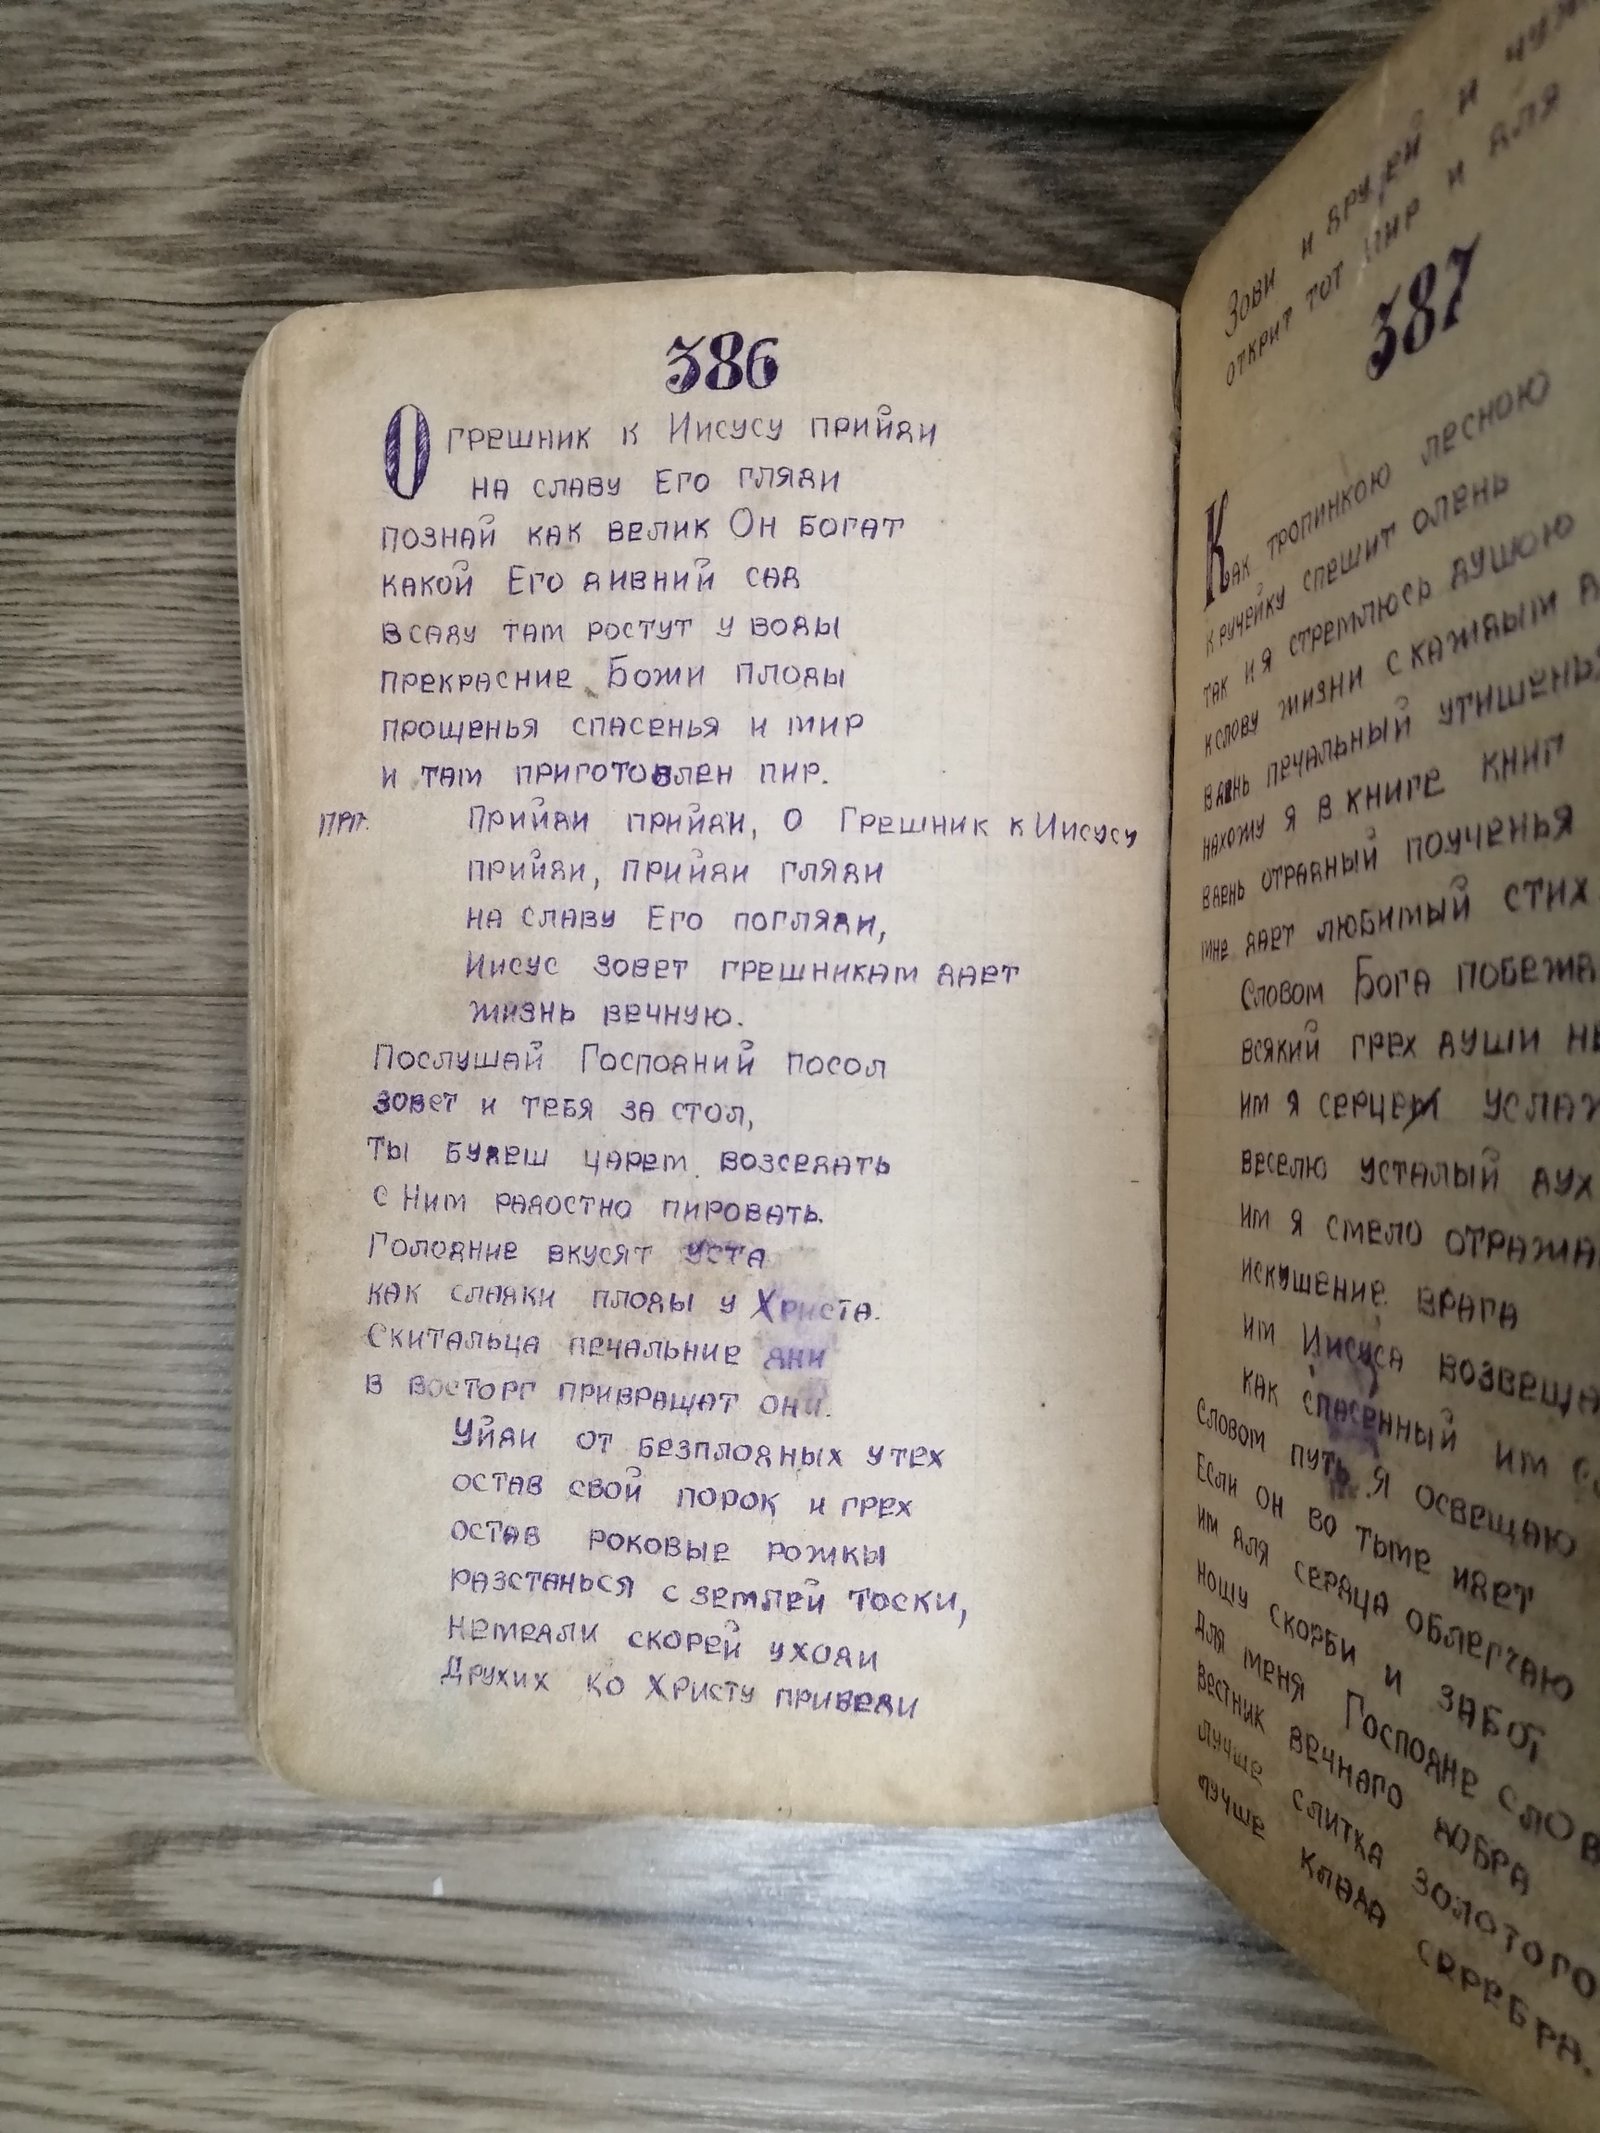 386
О грешник к Иисусу прийди
на славу Его гляди
познай как велик Он богат
какой Его дивний сад
в саду там ростут у воды
прекрасние Божи плоды
прощенья спасенья и мир
и там приготовлен пир.
Прийди прийди, о Грешник к Иисусу
прийди, прийди гляди
на славу Его погляди,
Иисус зовет грешникам дает
жизнь вечную.
Послушай Господний посол
зовет и тебя за стол,
ты будеш царем возседать
с Ним радостно пировать.
Голодние вкусят уста
как сладки плоды у Христа.
Скитальца печальние дни
в восторг привращат они.
Уйди от безплодных утех
остав свой порок и грех
остав роковые рожкы
разстанься с землей тоски,
немедли скорей уходи
Друхих ко Христу приведи
Зови и друзей и
открит тот пир и для
387
Как тропинкою лесною
к ручейку спешит олень
так и я стремлюсь душою
к слову жизни с каждым
в день печальный
нахожу я в книге книг
в день отрадный поученья
мне дает любимый стих.
Словом Бога
всякий грех души
им я сердцем
веселю усталый дух
им я смело
искушение врага
им Иисуса
как спасенный им
Словом путь я освещаю
Если он во тьме идет
им для сердца облегчаю
ношу скорби и забот
Для меня Господне
вестник вечнаго добра
лучше слитка золотого
лучше клада серебра.